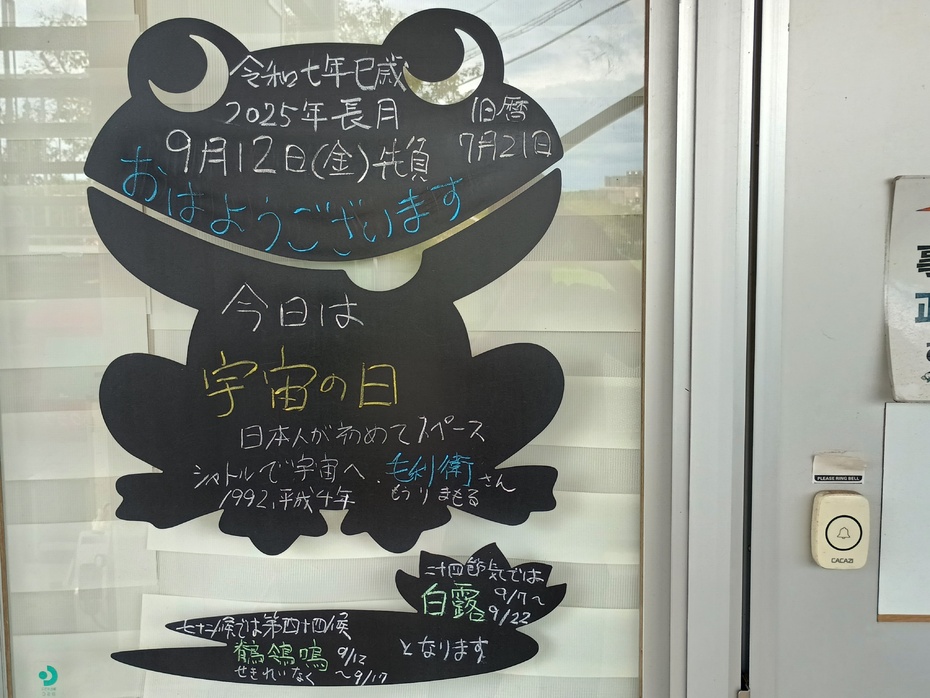 令和七年巳歳
2025年長月
旧暦
7月21日
9月12日(金)先負
おはようございます
今日は
宇宙の日
日本人が初めてスペース
シャトルで宇宙へ、毛利衛さん
もうりまもる
1992、平成4年
二十四節気では
白露 9/7〜
9/22
となります
七十二候では第四十四候
鶺鴒鳴 9/12
せきれいなく 〜9/17
PLEASE RING BELL
CACAZI